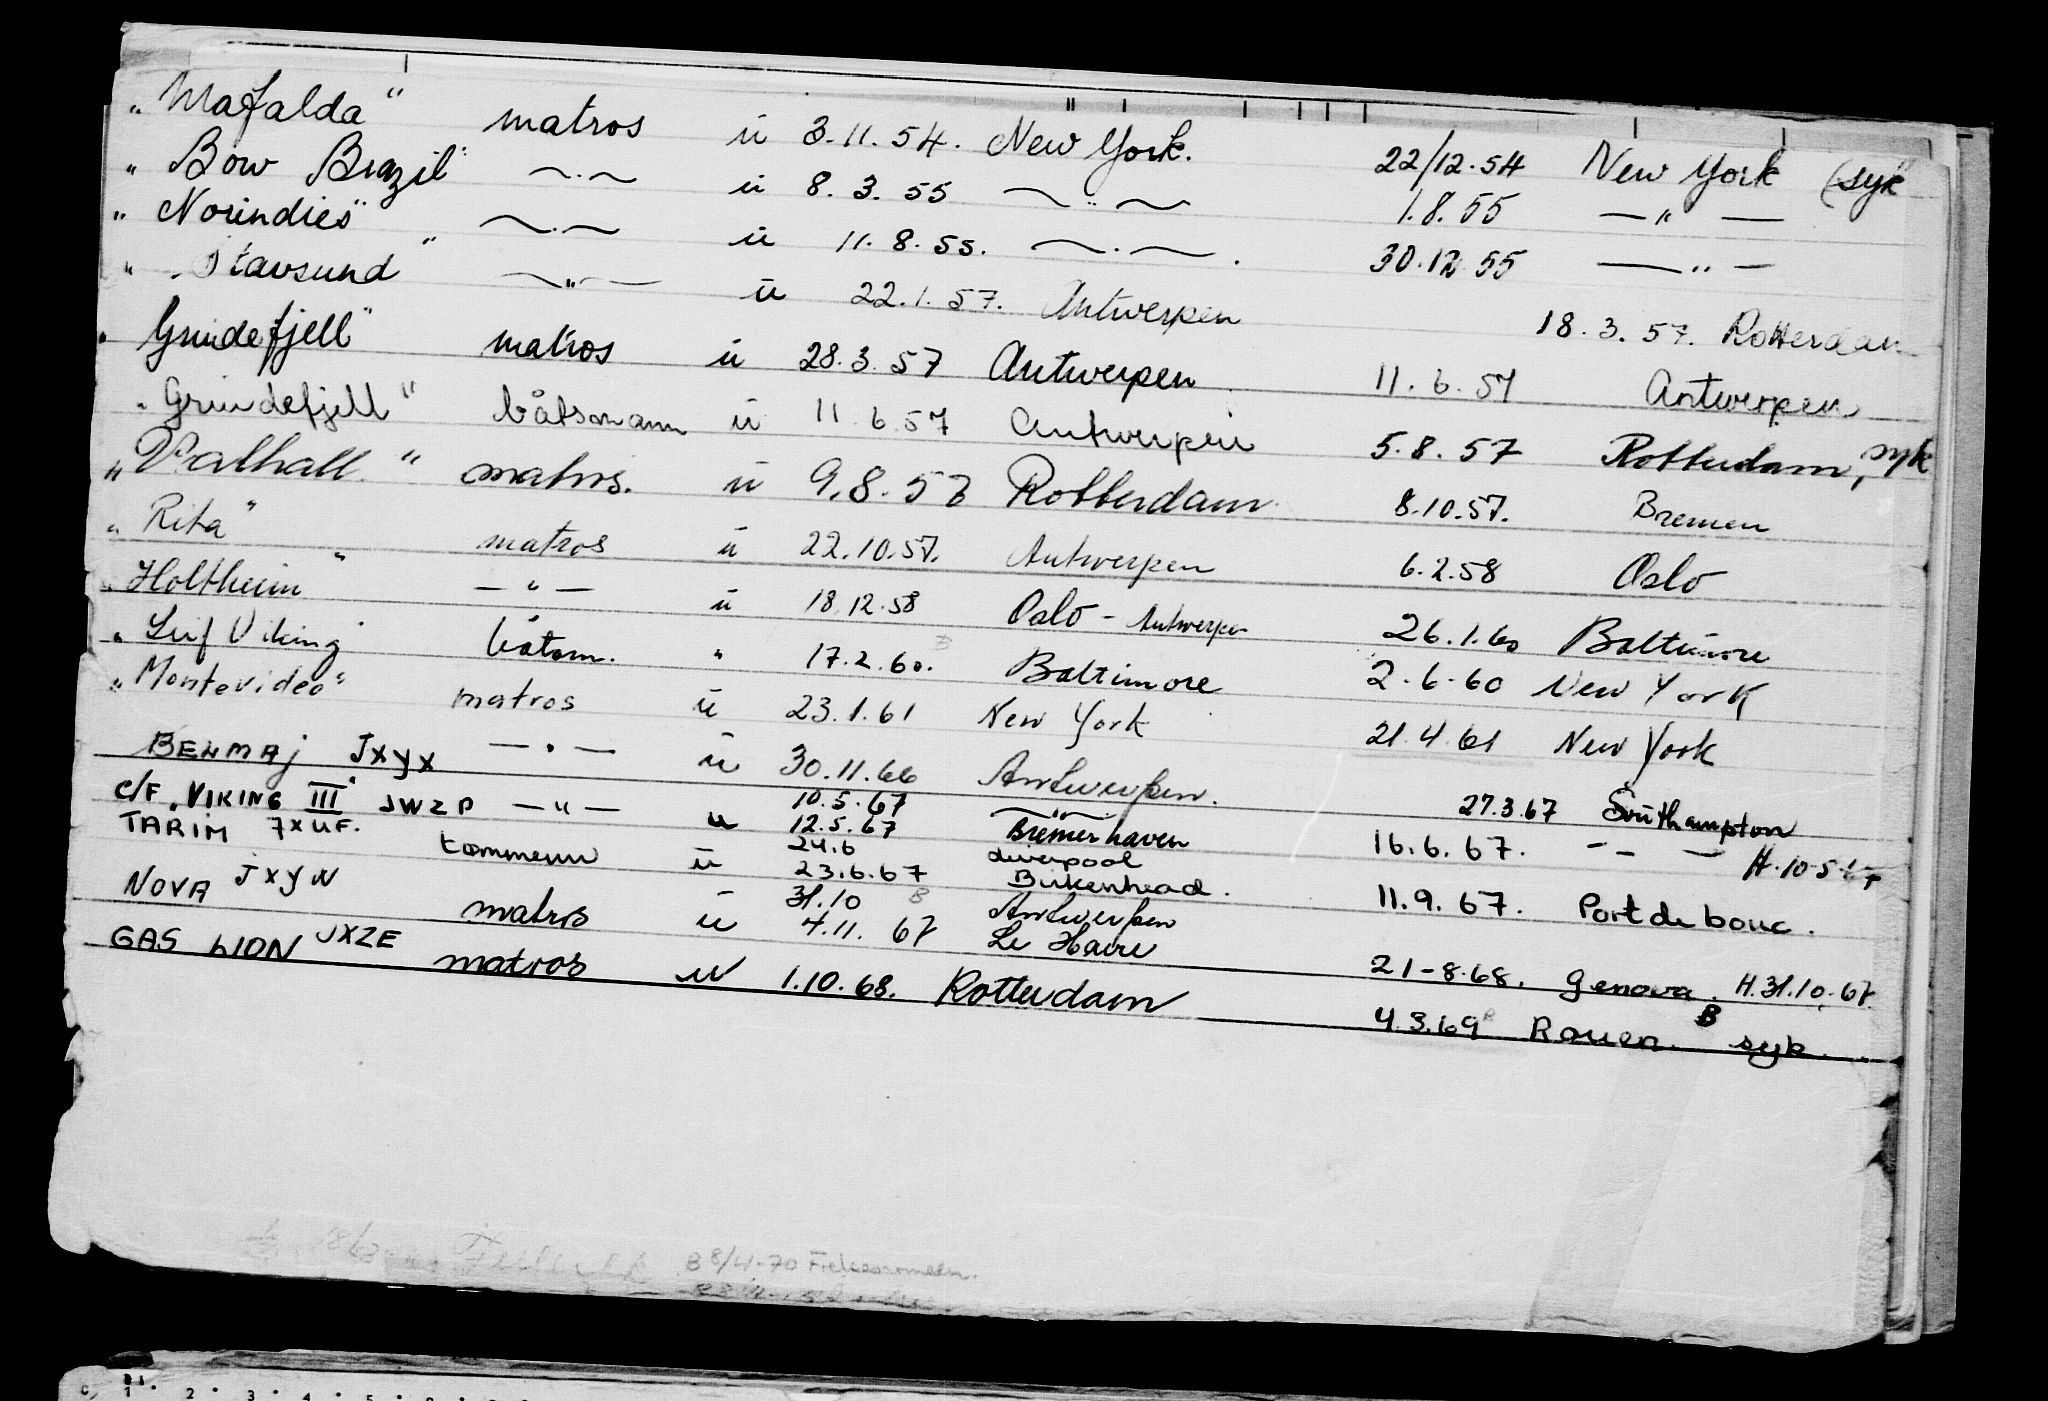 „ Mafalda" matros u 3.11.54. New York. 22/12.54 New York (syk
„ Bow Brazil" —„— u 8.3.55 —„— 1.8.55 —„—
„ Norindies" —„— u 11.8.55. —„— . 30.12.55 —„—
„ Stavsund" —„— u 22.1.57. Antwerpen 18.3.57. Rotterdam
„ Grindefjell" matros u 28.3.57 Antwerpen 11.6.57 Antwerpen
„ Grindefjell" båtsmann u 11.6.57 Antwerpen 5.8.57 Rotterdam, syk
„ Valhall" matros. u 9.8.57 Rotterdam 8.10.57. Bremen
„ Rita" matros u 22.10.57. Antwerpen 6.2.58 Oslo
„ Holtheim" —„— u 18.12.58 Oslo - Antwerpen 26.1.60 Baltimore
„ Leif Viking" båtsm. „ 17.2.60. Baltimore 2.6.60 New York
„ Montevideo" matros u 23.1.61 New York 21.4.61 New York
BENMAJ JXYX —„— u 30.11.66 Antwerpen. 27.3.67 Southampton
C/F „VIKING III" JWZP —„— u 10.5.67 —„—
12.5.67 Bremerhaven 16.6.67. —„— H.10-5-67
TARIM JXUF. tømmerm u 24.6 Liverpool
23.6.67 Birkenhead. 11.9.67. Port de bouc.
NOVA JXYW matros u 31.10 B Antwerpen
4.11.67 Le Havre 21-8.68. Genova. H.31.10.67
GAS LION JXZE matros u 1.10.68. Rotterdam 4.3.69 B Rouen. B syk.
B 8/4-70
C 1 2 3 4 5